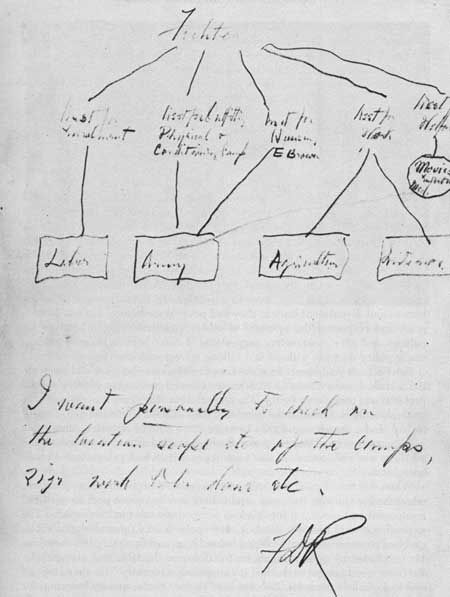 Fechter
Asst for
Enrolment
Asst for
Physical &
Conditioning Camp
Asst for
E Brown
Asst for
Work
Asst
Movies
Labor
Army
Agriculture
Interior
I want personally to check on
the location scope etc of the camps,
size work to be done etc.
FDR